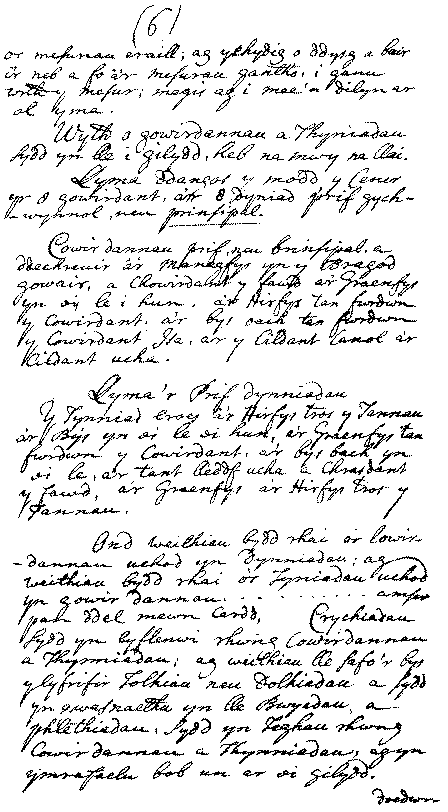 (6)
or mesurau eraill; ag ychydig o ddysg a bair
ir neb a fo a'r mesurau gantho, i ganu
wrth y mesur; megis ag i mae'n dilyn ar
ol yma.
Wyth o gowirdannau a Thyniadau
sydd yn lle i gilydd, heb na mwy na llai.
Llyma ddangos y modd y Ceweir
yr 8 gowirdant, a'r 8 Dyniad prif gych-
-wynnol, neu prinsipal.
Cowirdannau prif neu brinsipal, a
ddechreuir a'r Manegfys yn y Bragod
gowair, a Chowirdant y fawd a'r Graenfys
yn ei le i hun. a'r Hirfys tan fwrdwn
y Cowirdant. a'r bys bach tan fwrdwn
y Cowirdant Isa, a'r y Cildant Canol a'r
Cildant ucha.
Llyma'r Prif dynniadau
Y Tynniad croes a'r Hirfys tros y Tannau
a'r Bys yn ei le ei hun, a'r Graenfys tan
fwrdwn y Cowirdant, a'r bys bach yn
ei le, a'r tant lleddf ucha a Chrasdant
y fawd, a'r Graenfys a'r Hirfys tros y
Tannau.
Ond weithiau bydd rhai o'r Cowir-
-dannau uchod yn Dynniadau; ag
weithiau bydd rhai o'r Tyniadau uchod
yn gowir dannau. . . . . . . . . . amser
pan ddel mewn Cerdd, Crychiadau
sydd yn cyflenwi rhwng Cowirdannau
a Thynniadau; ag weithiau lle safo'r bys
y lyfrifir Tolhiau neu Dolhiadau a sydd
yn gwasnaetha yn lle Bwyadau, a
phlethiadau, sydd yn Teghau rhwng
Cowirdannau a Thynniadau; ag yn
ymrafaelu bob un ar ei gilydd.